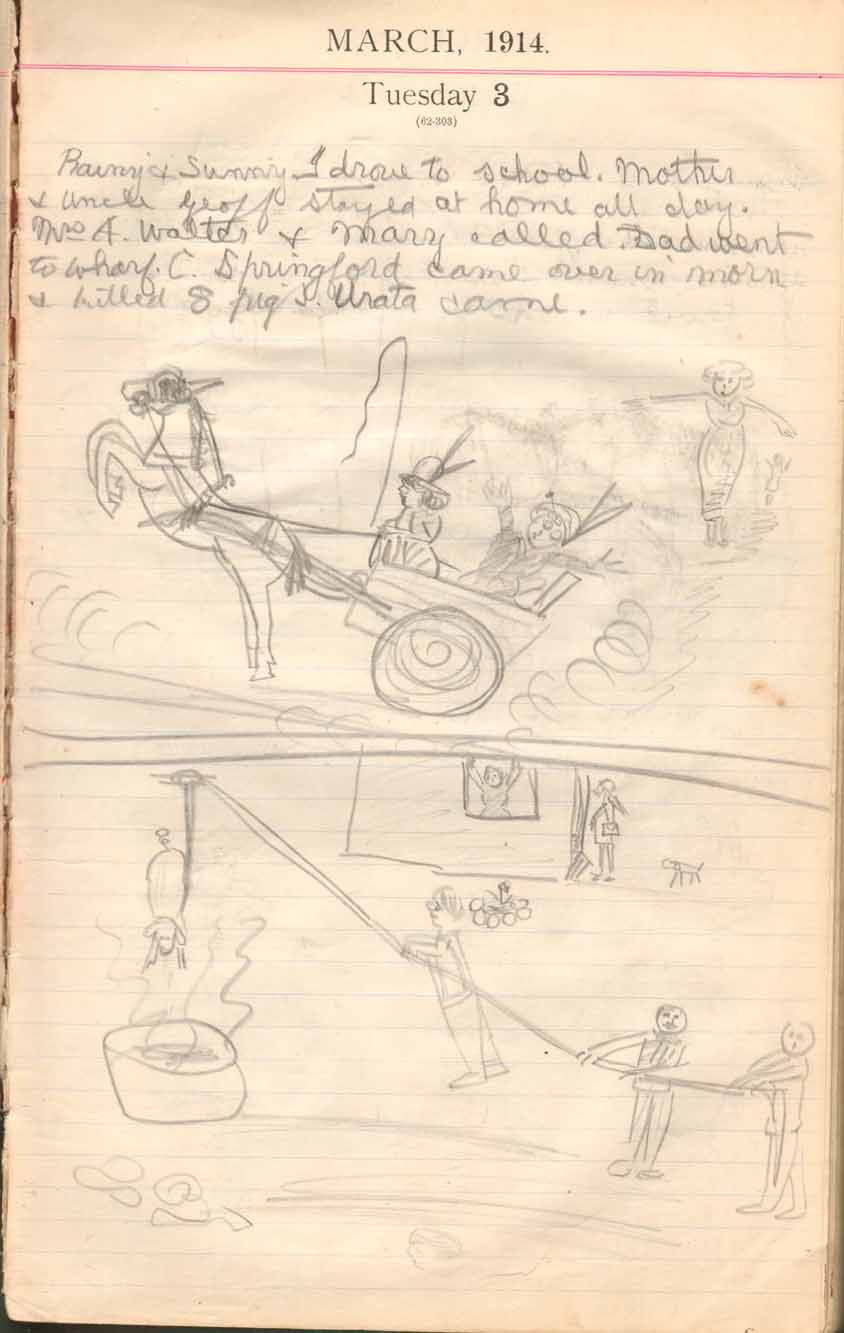 MARCH, 1914.
Tuesday 3
(62-303)
Rainy & Sunny. I drove to school. Mother
& Uncle Geoff stayed at home all day.
Mrs A. Walter & Mary called. Dad went
to wharf. C. Springford came over in morn
& killed 8 pig's. Urata came.